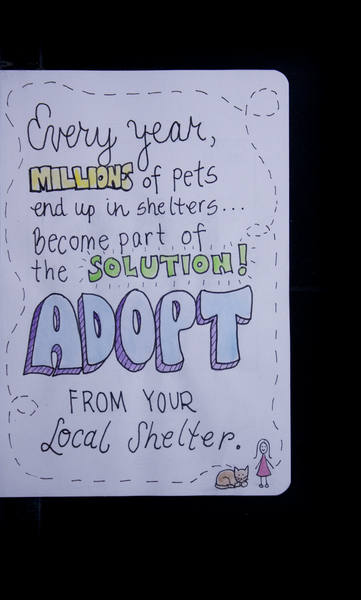 Every year,
MILLIONS of pets
end up in shelters...
become part of
the SOLUTION!
ADOPT
FROM YOUR
Local Shelter.